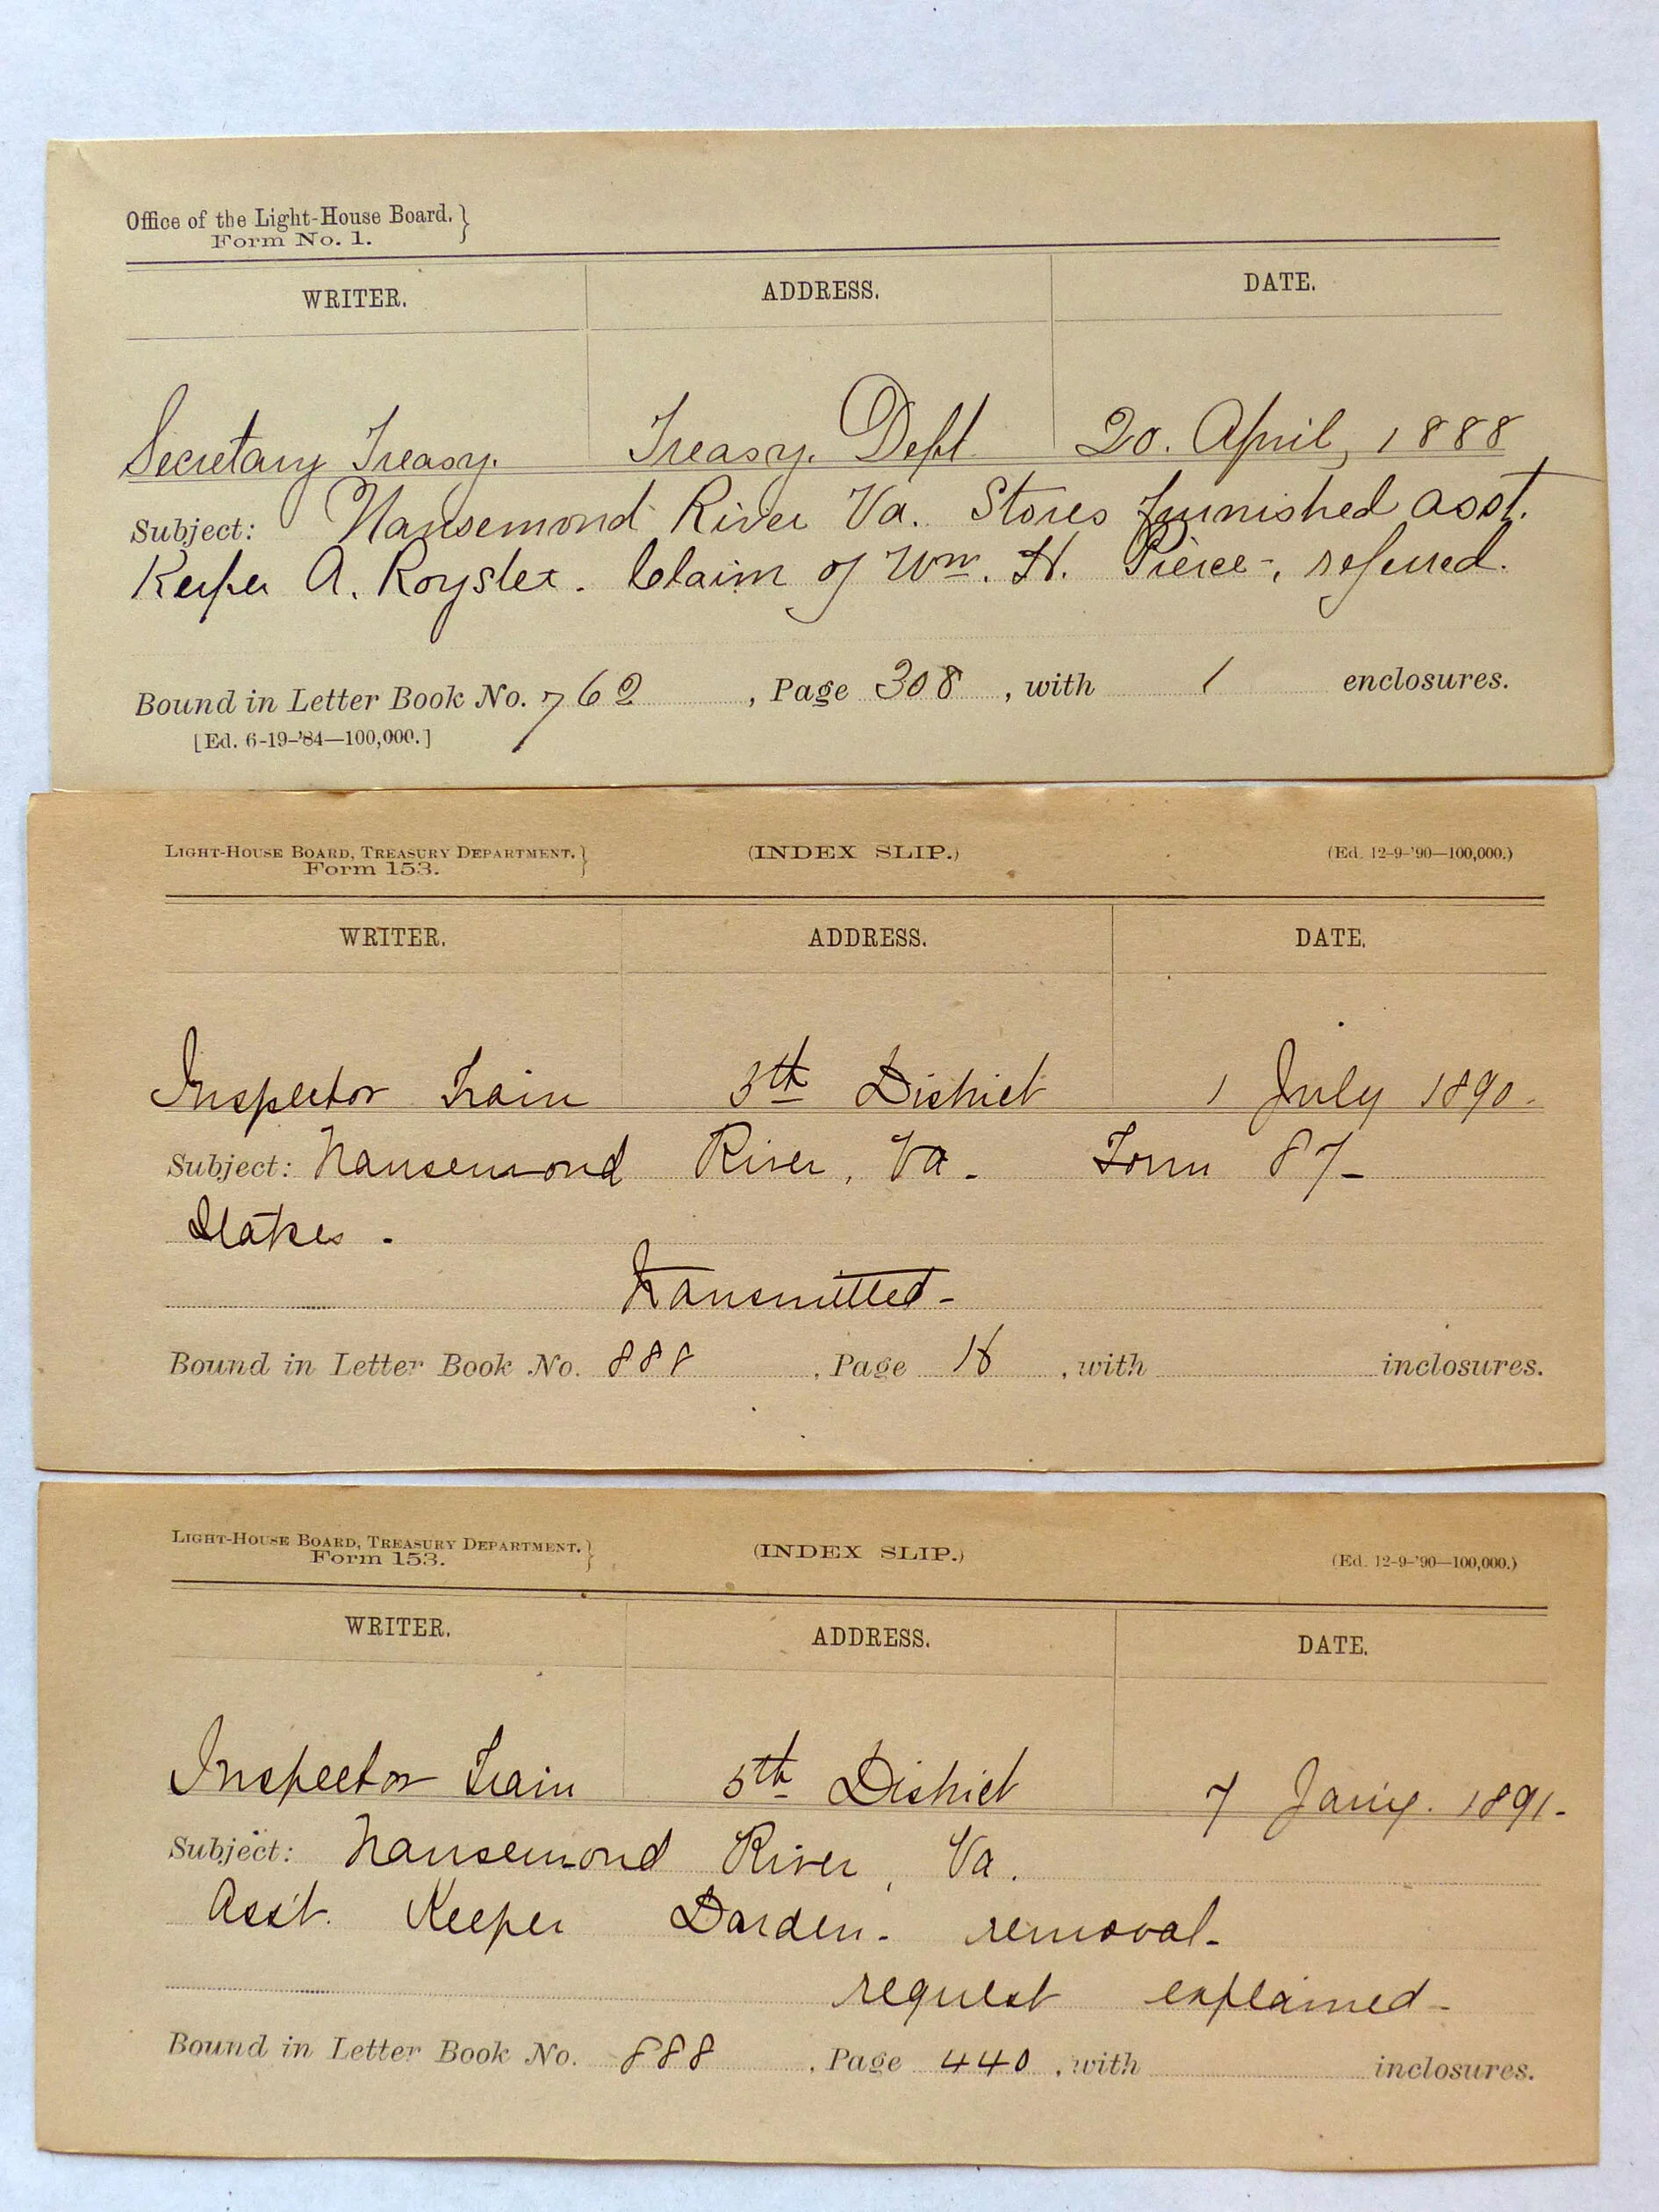 Office of the Light-House Board.}
Form No. 1.
WRITER. ADDRESS. DATE.
Secretary Treasy. Treasy. Dept 20. April, 1888
Subject: Nansemond River Va. Stores furnished asst.
Keeper A. Royster. Claim of Wm. H. Pierce-, referred.
Bound in Letter Book No. 762, Page 308, with 1 enclosures.
[Ed. 6-19-'84—100,000.]
LIGHT-HOUSE BOARD, TREASURY DEPARTMENT.} (INDEX SLIP.) (Ed. 12-9-'90—100,000.)
Form 153.
WRITER. ADDRESS. DATE.
Inspector Train 5th District 1 July 1890.
Subject: Nansemond River, Va. Form 87-
Transmitted-
Bound in Letter Book No. 888, Page 16, with inclosures.
LIGHT-HOUSE BOARD, TREASURY DEPARTMENT.} (INDEX SLIP.) (Ed. 12-9-'90—100,000.)
Form 153.
WRITER. ADDRESS. DATE.
Inspector Train 5th District 7 Jany. 1891-
Subject: Nansemond River, Va.
Ass't. Keeper Darden- removal-
request explained-
Bound in Letter Book No. 888, Page 440, with inclosures.